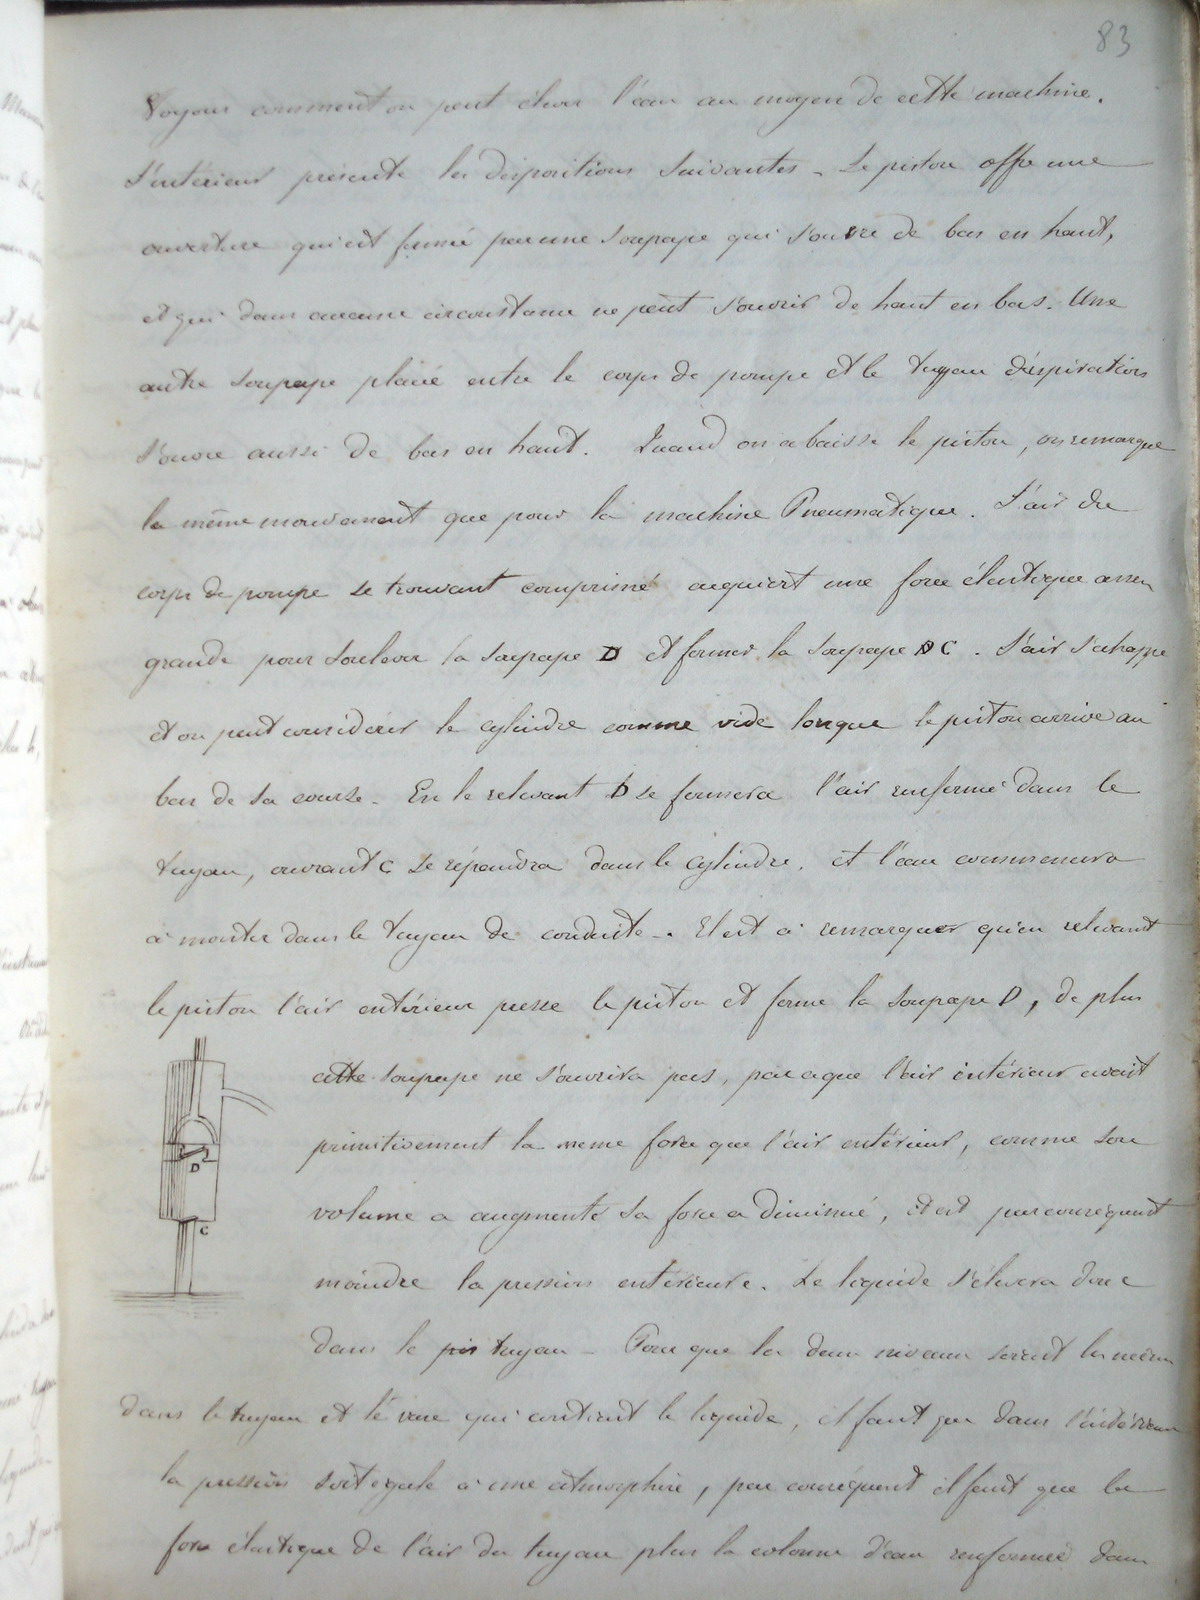 83
Voyons comment on peut élever l'eau au moyen de cette machine.
L'intérieur présente les dispositions suivantes - Le piston offre une
ouverture qui est fermé par une soupape qui s'ouvre de bas en haut,
et qui dans aucune circonstance ne peut s'ouvrir de haut en bas. Une
autre soupape placée entre le corps de pompe et le tuyau d'aspiration
s'ouvre aussi de bas en haut. Quand on abaisse le piston, on remarque
le même mouvement que pour la machine Pneumatique. L'air du
corps de pompe se trouvant comprimé acquiert une force élastique assez
grande pour soulever la soupape D et fermer la soupape C. L'air s'échappe
et on peut considérer le cylindre comme vide lorsque le piston arrive au
bas de sa course. En le relevant D se fermera l'air renfermé dans le
tuyau, ouvrant C se répandra dans le cylindre, et l'eau commencera
à monter dans le tuyau de conduite -. Il est à remarquer qu'en relevant
le piston l'air extérieur presse le piston et ferme la soupape D, de plus
cette soupape ne s'ouvrira pas, parceque l'air intérieur avait
primitivement la meme force que l'air extérieur, comme son
volume a augmenté sa force a diminué, et est par conséquent
moindre la pression extérieure. Le liquide s'élevera donc
dans le pis tuyau - Pour que les deux niveaux soient les mêmes
dans le tuyau et le vase qui contient le liquide, il faut que dans l'intérieur
la pression soit égale à une atmosphère, par conséquent il faut que la
force élastique de l'air du tuyau plus la colonne d'eau renfermée dans
D
C